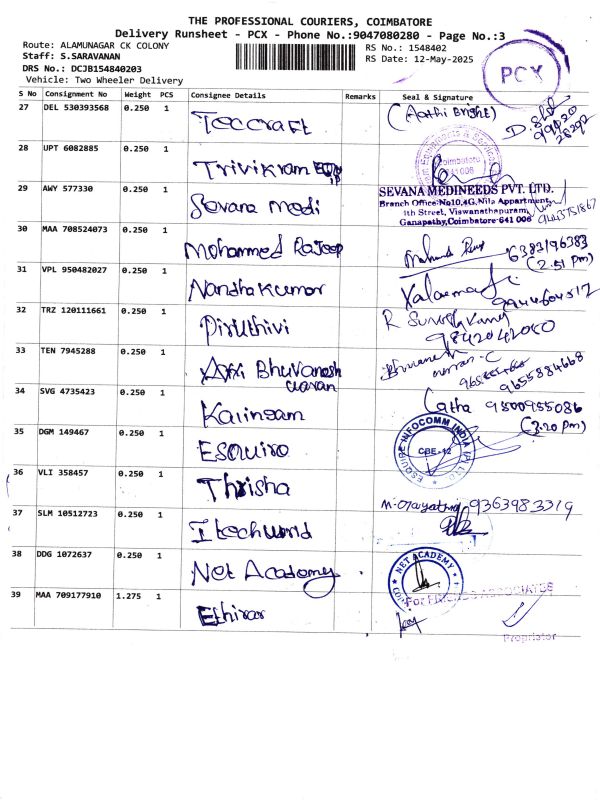 THE PROFESSIONAL COURIERS, COIMBATORE
Delivery Runsheet - PCX - Phone No.:9047080280 - Page No.:3
Route: ALAMUNAGAR CK COLONY
Staff: S.SARAVANAN
DRS No.: DCJB154840203
Vehicle: Two Wheeler Delivery
RS No.: 1548402
RS Date: 12-May-2025
PCX
S No Consignment No Weight PCS Consignee Details Remarks Seal & Signature
27 DEL 530393568 0.250 1 Teccraft
28 UPT 6082885 0.250 1 Trivikram
Coimbatore
641 006
29 AWY 577330 0.250 1 Sevana Medi
SEVANA MEDINEEDS PVT. LTD.
Branch Office:No10,4G,Nila Appartment,
1th Street, Viswanathapuram,
Ganapathy,Coimbatore-641 006
30 MAA 708524073 0.250 1 Mohammed Rajeep 6383196383
(2.51 Pm)
31 VPL 950482027 0.250 1 Nandhakumar
32 TRZ 120111661 0.250 1 Piruthivi 9842042040
33 TEN 7945288 0.250 1 Bhuvanesh
9655884668
34 SVG 4735423 0.250 1 9500955086
(3.20 Pm)
35 DGM 149467 0.250 1 Esquire ESQUIRE INFOCOMM INDIA (P) LTD
CBE-12
36 VLI 358457 0.250 1 Thrisha 9363983319
37 SLM 10512723 0.250 1 Itechworld
38 DDG 1072637 0.250 1 Net Academy NET ACADEMY
39 MAA 709177910 1.275 1 Ethiraj
Proprietor